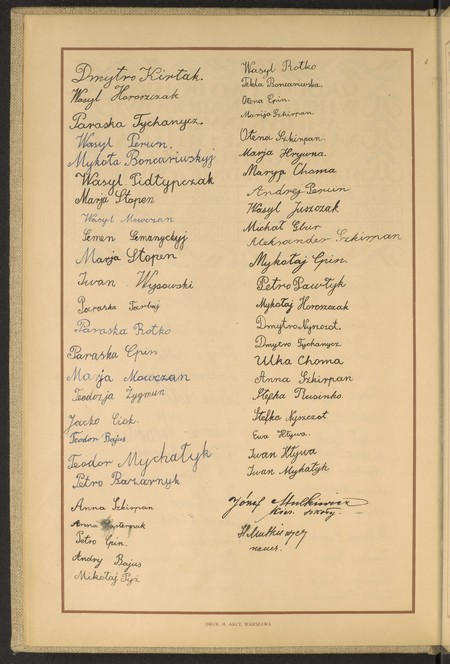 Dmytro Kirtak.
Wasyl Horoszczak
Paraska Tychanycz.
Wasyl Perun.
Mykoła Boncariwskyj
Wasyl Pidtypczak
Marja Stopen
Wasyl Mowczan
Semen Semanyckyj
Marja Stopen
Iwan Wysowski
Paraska
Paraska Rotko
Paraska Cpin
Marja Mowczan
Teodozja Zygmun
Jacko Ciok.
Teodor Bajus
Teodor Mychałyk
Petro Bazarnyk
Anna Szkirpan
Anna
Petro Cpin.
Andry Bajus
Mikołaj Pyż
Wasyl Rotko
Tekla Boncariwska.
Ołena Cpin.
Marija Szkirpan.
Ołena Szkirpan.
Marja Hrywna.
Maryja Choma
Andrej Perun
Wasyl Juszczak
Michał Gbur
Aleksander Szkirpan
Mykołaj Cpin.
Petro Pawłyk
Mykołaj Horoszczak
Dmytro
Dmytro Tychanycz.
Ulka Choma
Anna Szkirpan
Stefka Rusinko.
Stefka Nyszczot
Ewa Hływa.
Iwan Hływa
Iwan Mykałyk
Józef Mutkiewicz
Kier. szkoły.
H. Mutkiewicz
naucz.
DRUK. M. ARCT, WARSZAWA